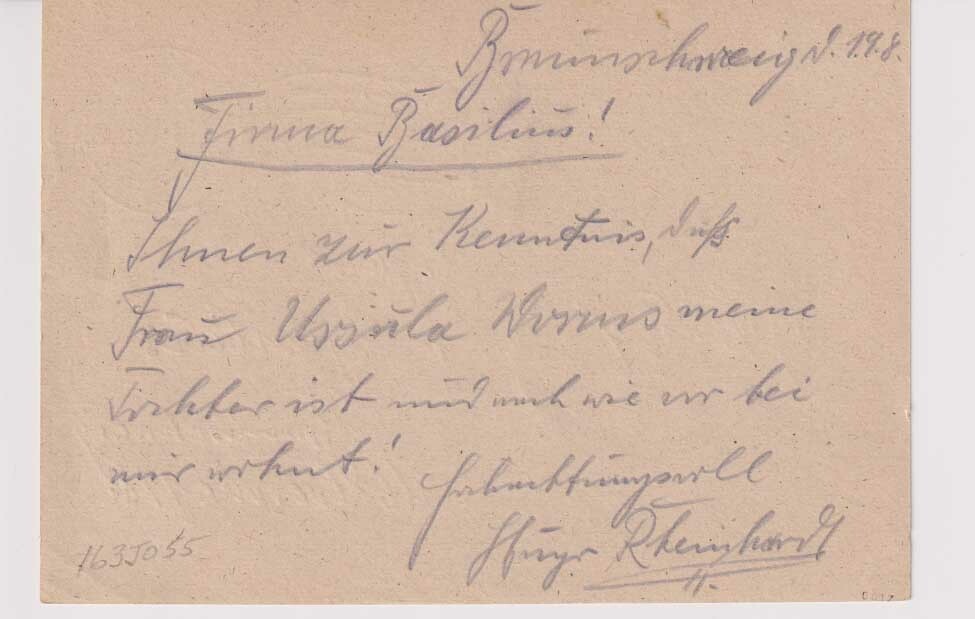 Braunschweig d. 19.8.
Firma Basilius!
Ihnen zur Kenntnis, daß
Frau Ursula Worms meine
Tochter ist und nach wie vor bei
mir wohnt!
Hochachtungsvoll
Hugo Rheinhardt
163J055